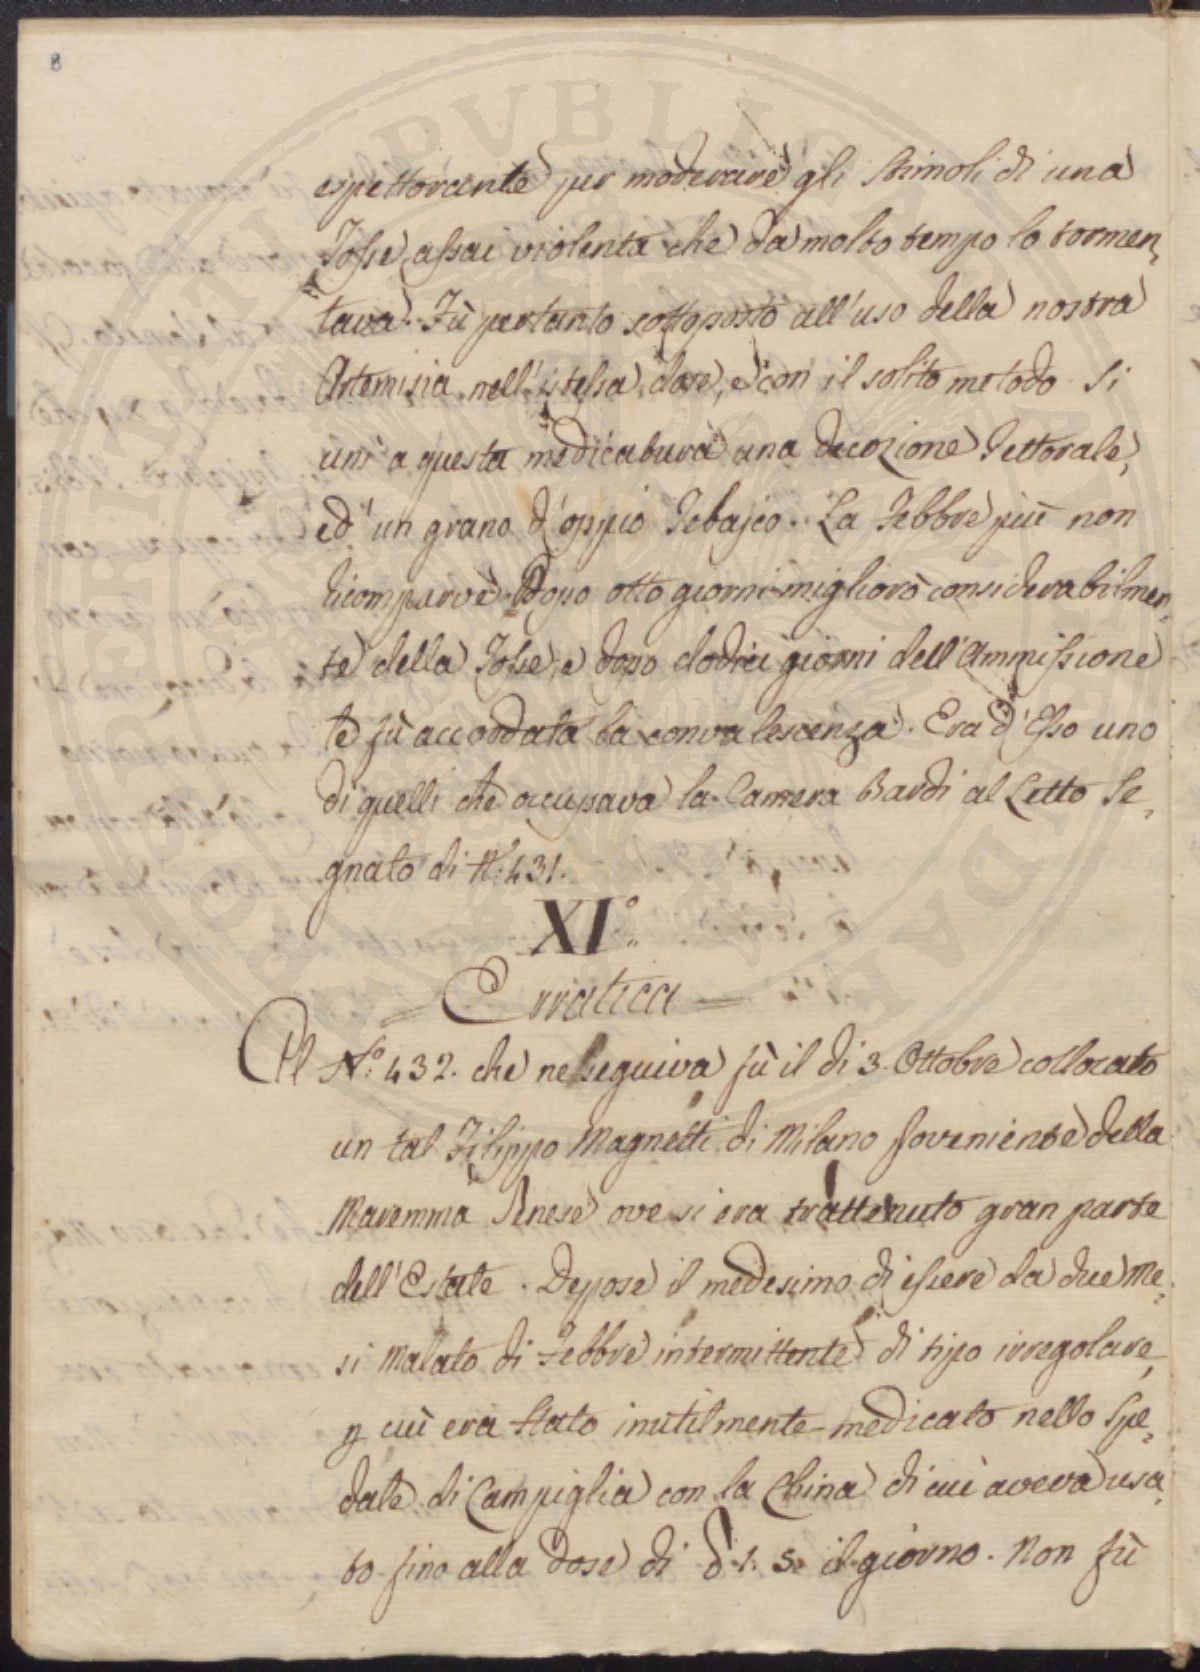 8
espettorante per moderare gli stimoli di una
Tosse assai violenta che da molto tempo lo tormen,
tava. Fù pertanto sottoposto all'uso della nostra
Artemisia nell'istessa dose, e con il solito metodo. Si
unì a questa medicatura una decozione Pettorale,
ed' un grano d'oppio Tebaico. La Febbre più non
ricomparve. Dopo otto giorni migliorò considerabilmen,
te della Tosse, e dopo dodici giorni dell'Ammissione
le fù accordata la convalescenza. Era d'Esso uno
di quelli che occupava la Camera Bardi al Letto Se,
gnato di N.° 431.
XI.°
Erratica
Al N.° 432. che ne seguiva fù il di 3. Ottobre collocato
un tal Filippo Magnetti di Milano proveniente della
Maremma Senese ove si era trattenuto gran parte
dell'Estate. Depose il medesimo di essere da due Me,
si Malato di Febbre intermittente di tipo irregolare,
p cui era stato inutilmente medicato nello Spe,
dale di Campiglia con la China di cui aveva usa,
to fino alla dose di il giorno. Non fù
POSTERITATI PVBLICAE VETVSTAS